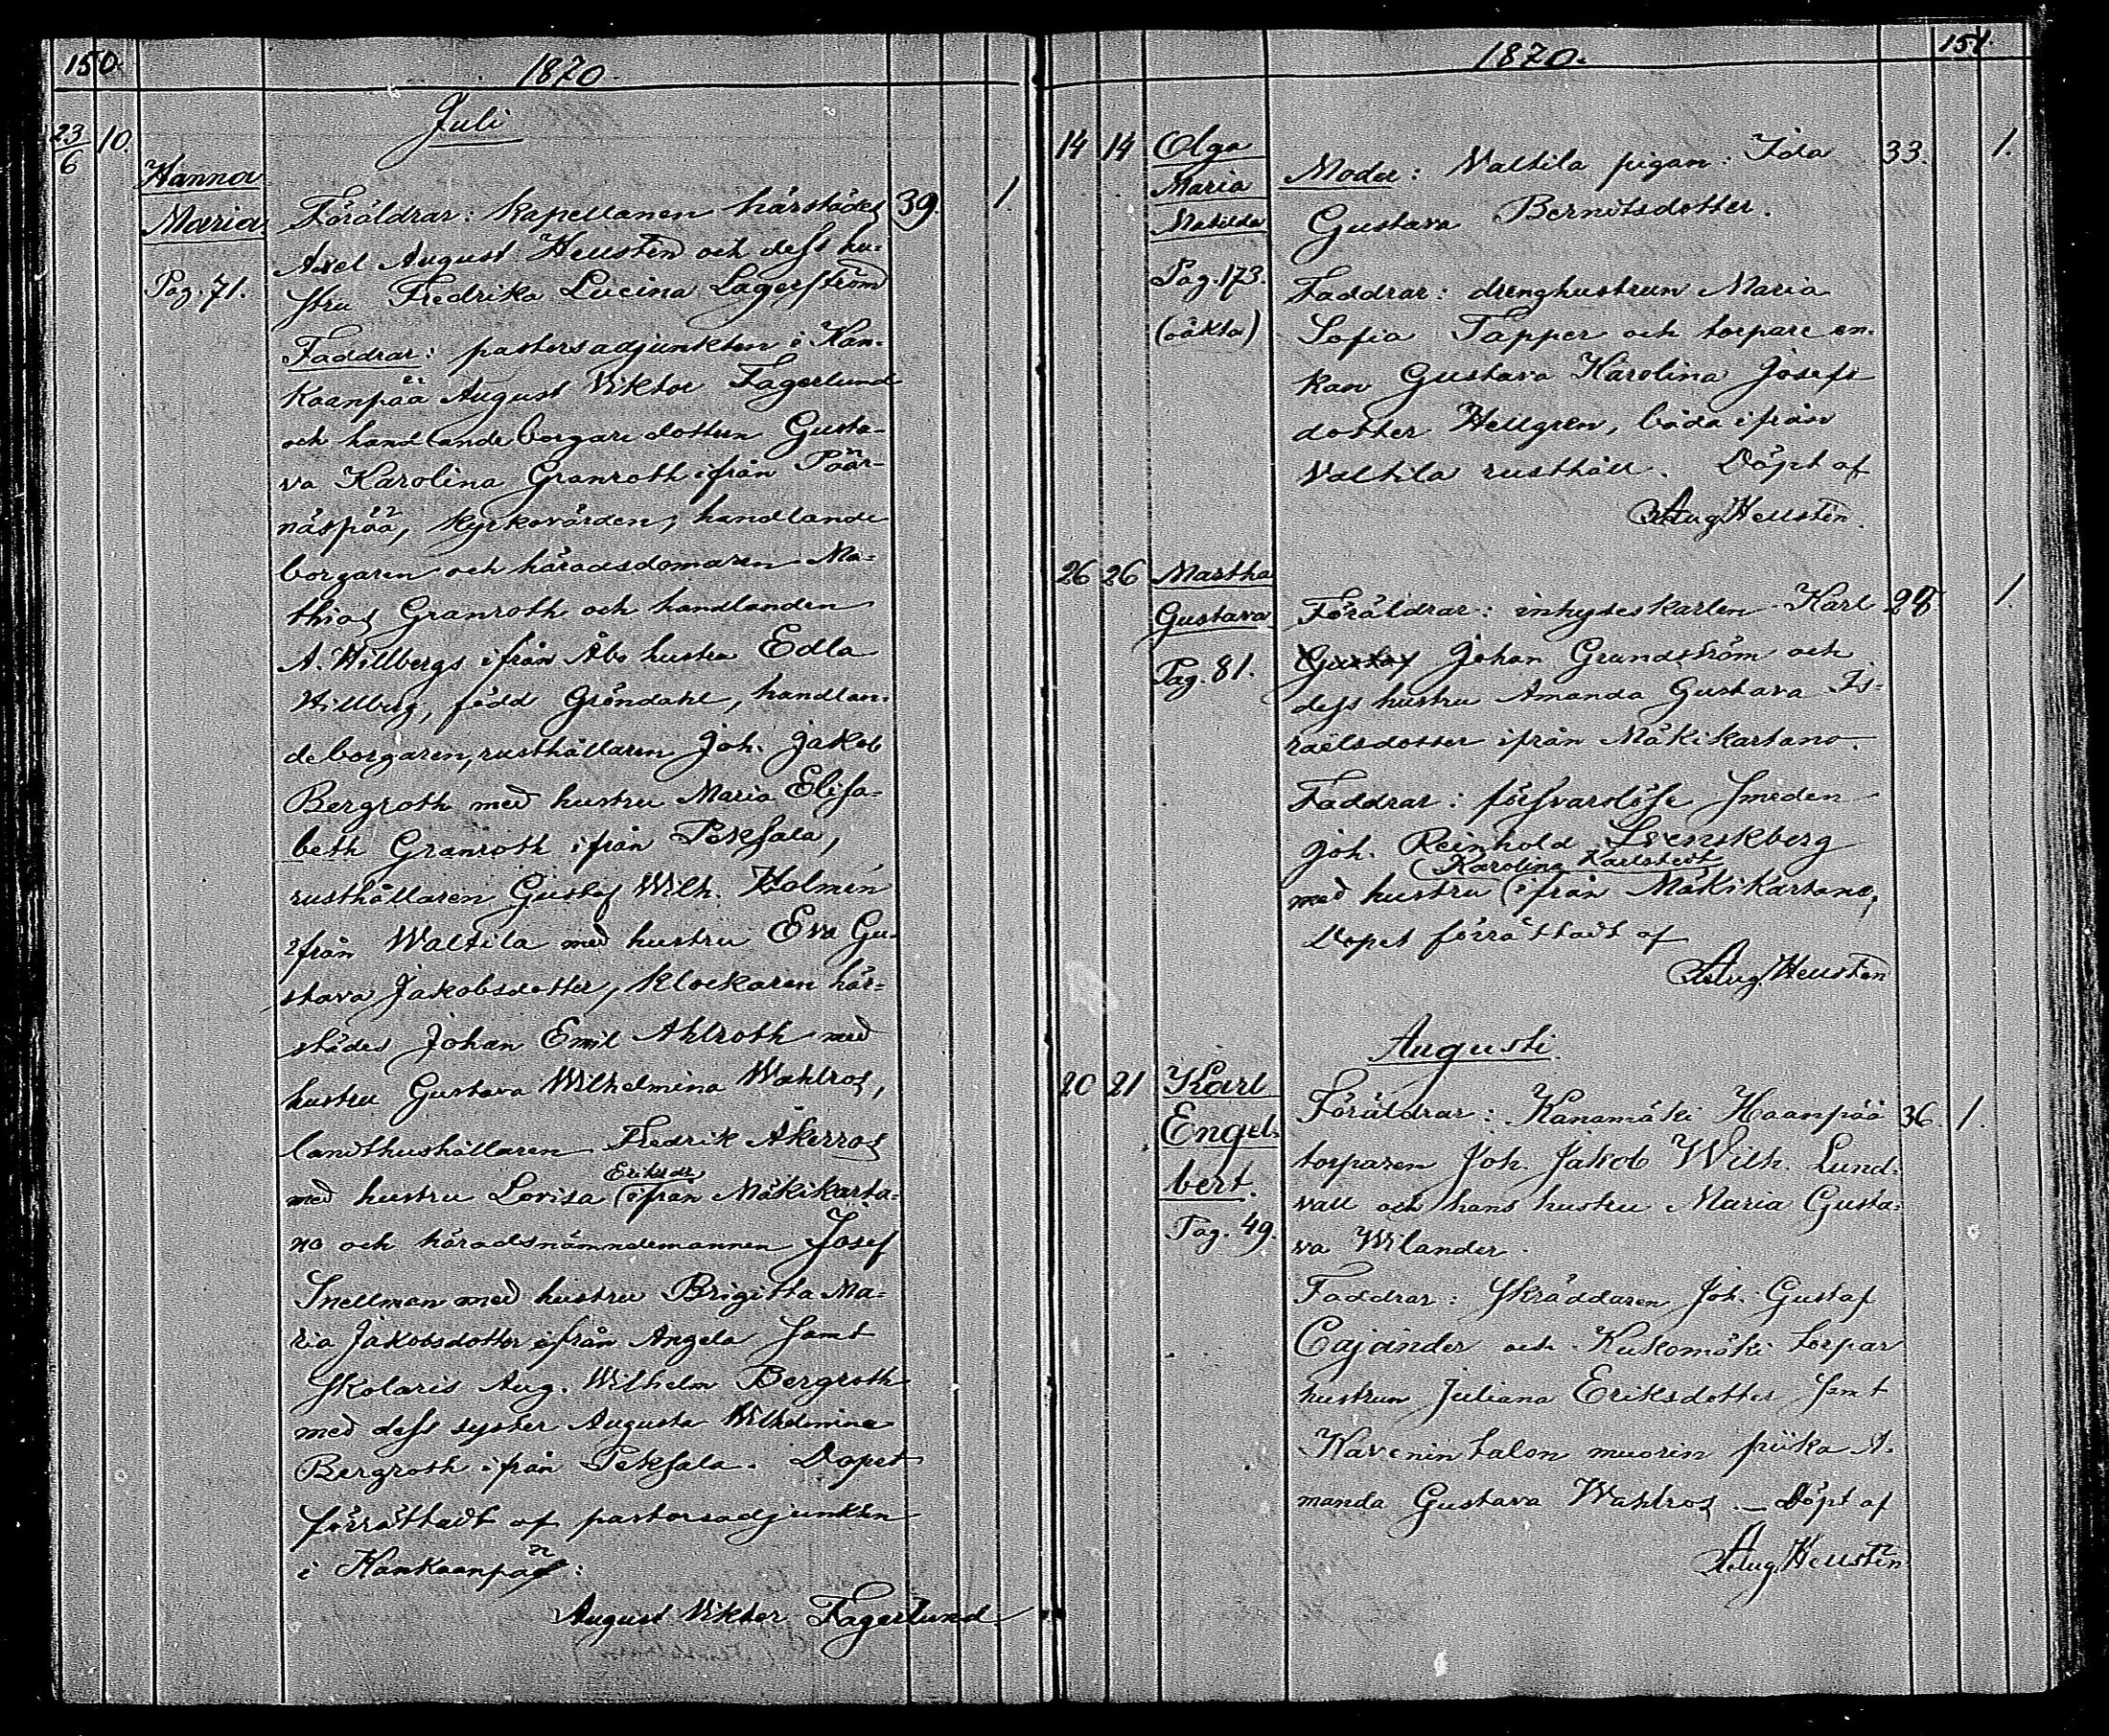 150.
1870
Juli
23/6 10.
Hanna
Maria
Pag. 71.
Föräldrar: Kapellanen härstädes 39. 1.
Axel August Hellstén och dess hu-
stru Fredrika Lucina Lagerström
Faddrar: pastorsadjunkten i Kan-
kaanpää August Viktor Fagerlund
och handlande borgare dottren Gusta-
va Karolina Granroth ifrån Päär-
näspää, Kyrkovärden, handlande
borgaren och häradsdomaren Ma-
thias Granroth och handlanden
A. Hillbergs ifrån Åbo hustru Edla
Hillberg, född Gröndahl, handlan-
de borgaren, rusthållaren Joh. Jakob
Bergroth med hustru Maria Elisa-
beth Granroth ifrån Peksala,
rusthållaren Gustaf Wilh. Holmén
ifrån Waltila med hustru Eva Gu-
stava Jakobsdotter, Klockaren här-
städes Johan Emil Ahlroth med
hustru Gustava Wilhelmina Wahlros,
landthushållaren Fredrik Åkerros
Eriksdr
med hustru Lovisa (ifrån Mäkikarta-
no och häradsnämndemannen Josef
Snellman med hustru Brigitta Ma-
ria Jakobsdotter ifrån Angela samt
Skolaris Aug. Wilhelm Bergroth
med dess syster Augusta Wilhelmina
Bergroth ifrån Peksala. Dopet
förrättadt af pastorsadjunkten
i Kankaanpää:
August Viktor Fagerlund.
1870.
151.
14 14 Olga
Maria
Matilda
Pag. 173.
(oäkta)
Moder: Valtila pigan: Ida 33. 1.
Gustava Berndtsdotter.
Faddrar: drenghustrun Maria
Sofia Tapper och torpare en-
kan Gustava Karolina Josefs
dotter Hellgren, båda ifrån
Valtila rusthåll. Döpt af
A Aug. Hellstén.
26 26 Martha
Gustava
Pag. 81.
Föräldrar: inhyseskarlen Karl 28. 1.
Gustaf Johan Grundström och
dess hustru Amanda Gustava Is-
raelsdotter ifrån Mäkikartano.
Faddrar: försvarslöse smeden
Joh. Reinhold Svenskberg
Karolina Karlstedt
med hustru (ifrån Mäkikartano,
Dopet förrättadt af
A Aug. Hellstén
Augusti
20 21 Karl
Engel-
bert.
Pag. 49.
Föräldrar: Kanamäki Haanpää 36. 1.
torparen Joh. Jakob Wilh. Lund-
vall och hans hustru Maria Gusta-
va Wilander.
Faddrar: Skräddaren Joh. Gustaf
Cajander och Kukomäki torpar
hustrun Juliana Eriksdotter samt
Kavenin talon muorin piika A-
manda Gustava Wahlros. — Döpt af
A Aug. Hellstén